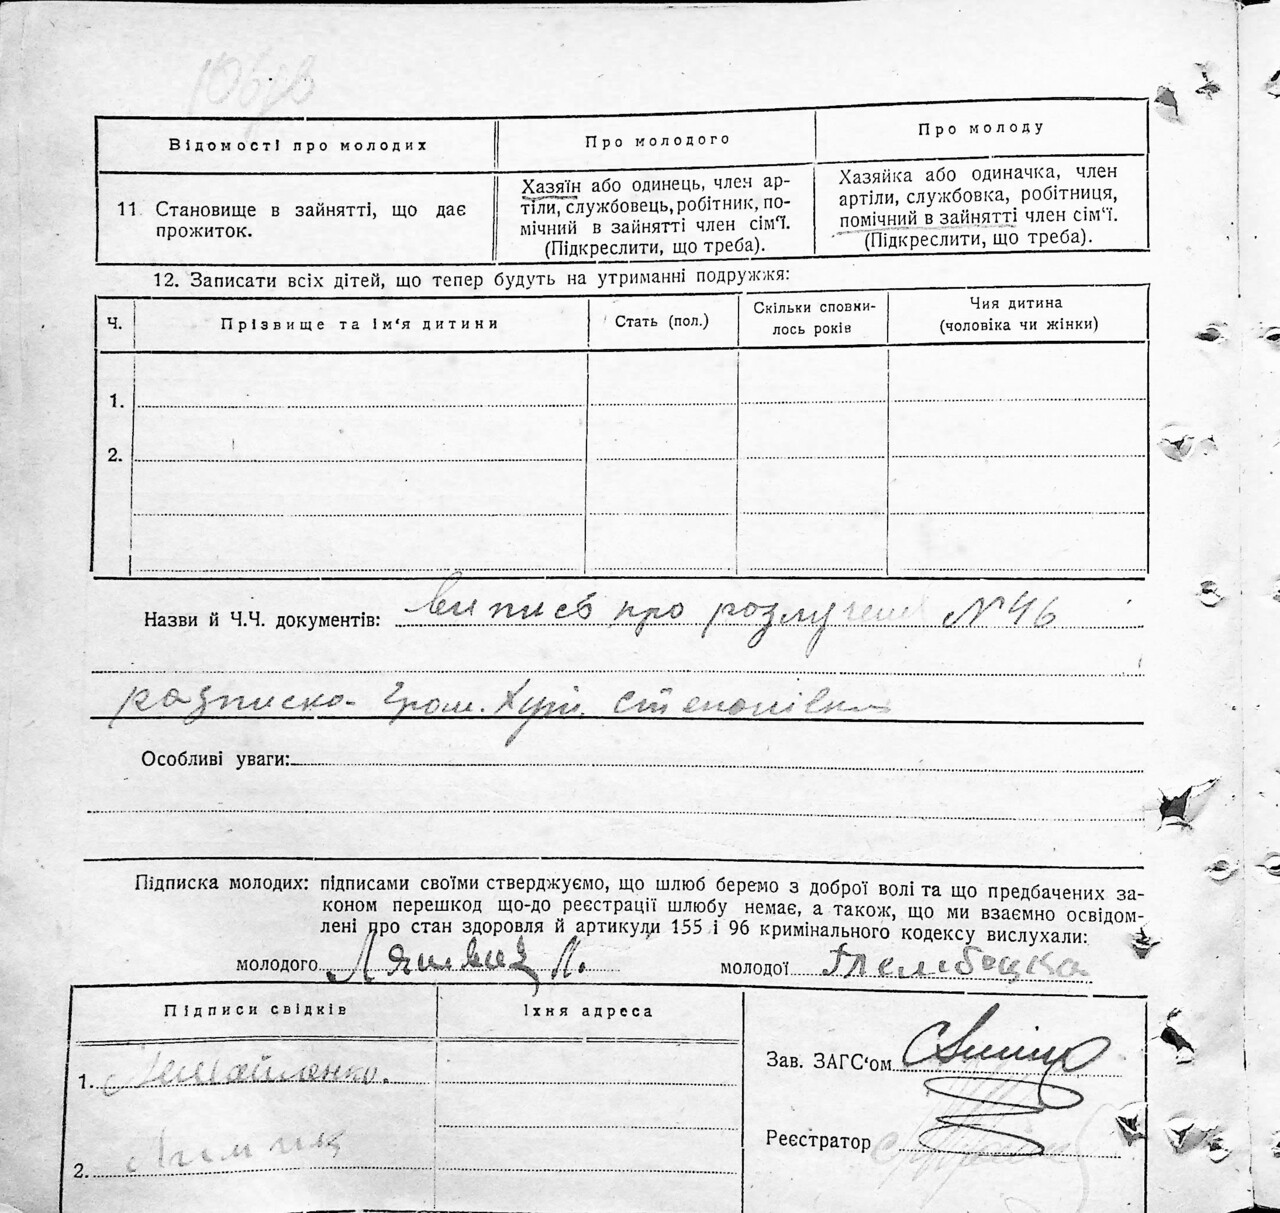 Відомості про молодих
Про молодого
Про молоду
11. Становище в зайнятті, що дає
прожиток.
Хазяїн або одинець, член ар-
тіли, службовець, робітник, по-
мічний в зайнятті член сім'ї.
(Підкреслити, що треба).
Хазяйка або одиначка, член
артіли, службовка, робітниця,
помічний в зайнятті член сім'ї.
(Підкреслити, що треба).
12. Записати всіх дітей, що тепер будуть на утриманні подружжя:
Ч.
Прізвище та ім'я дитини
Стать (пол.)
Скільки сповни-
лось років
Чия дитина
(чоловіка чи жінки)
1.
2.
Назви й Ч.Ч. документів: випись про розлучення №46
расписка Гром. Хут. Степанівки
Особливі уваги:
Підписка молодих: підписами своїми стверджуємо, що шлюб беремо з доброї волі та що предбачених за-
коном перешкод що-до реєстрації шлюбу немає, а також, що ми взаємно освідом-
лені про стан здоровля й артикули 155 і 96 кримінального кодексу вислухали:
молодого
молодої
Підписи свідків
Їхня адреса
1.
2.
Зав. ЗАГС'ом
Реєстратор